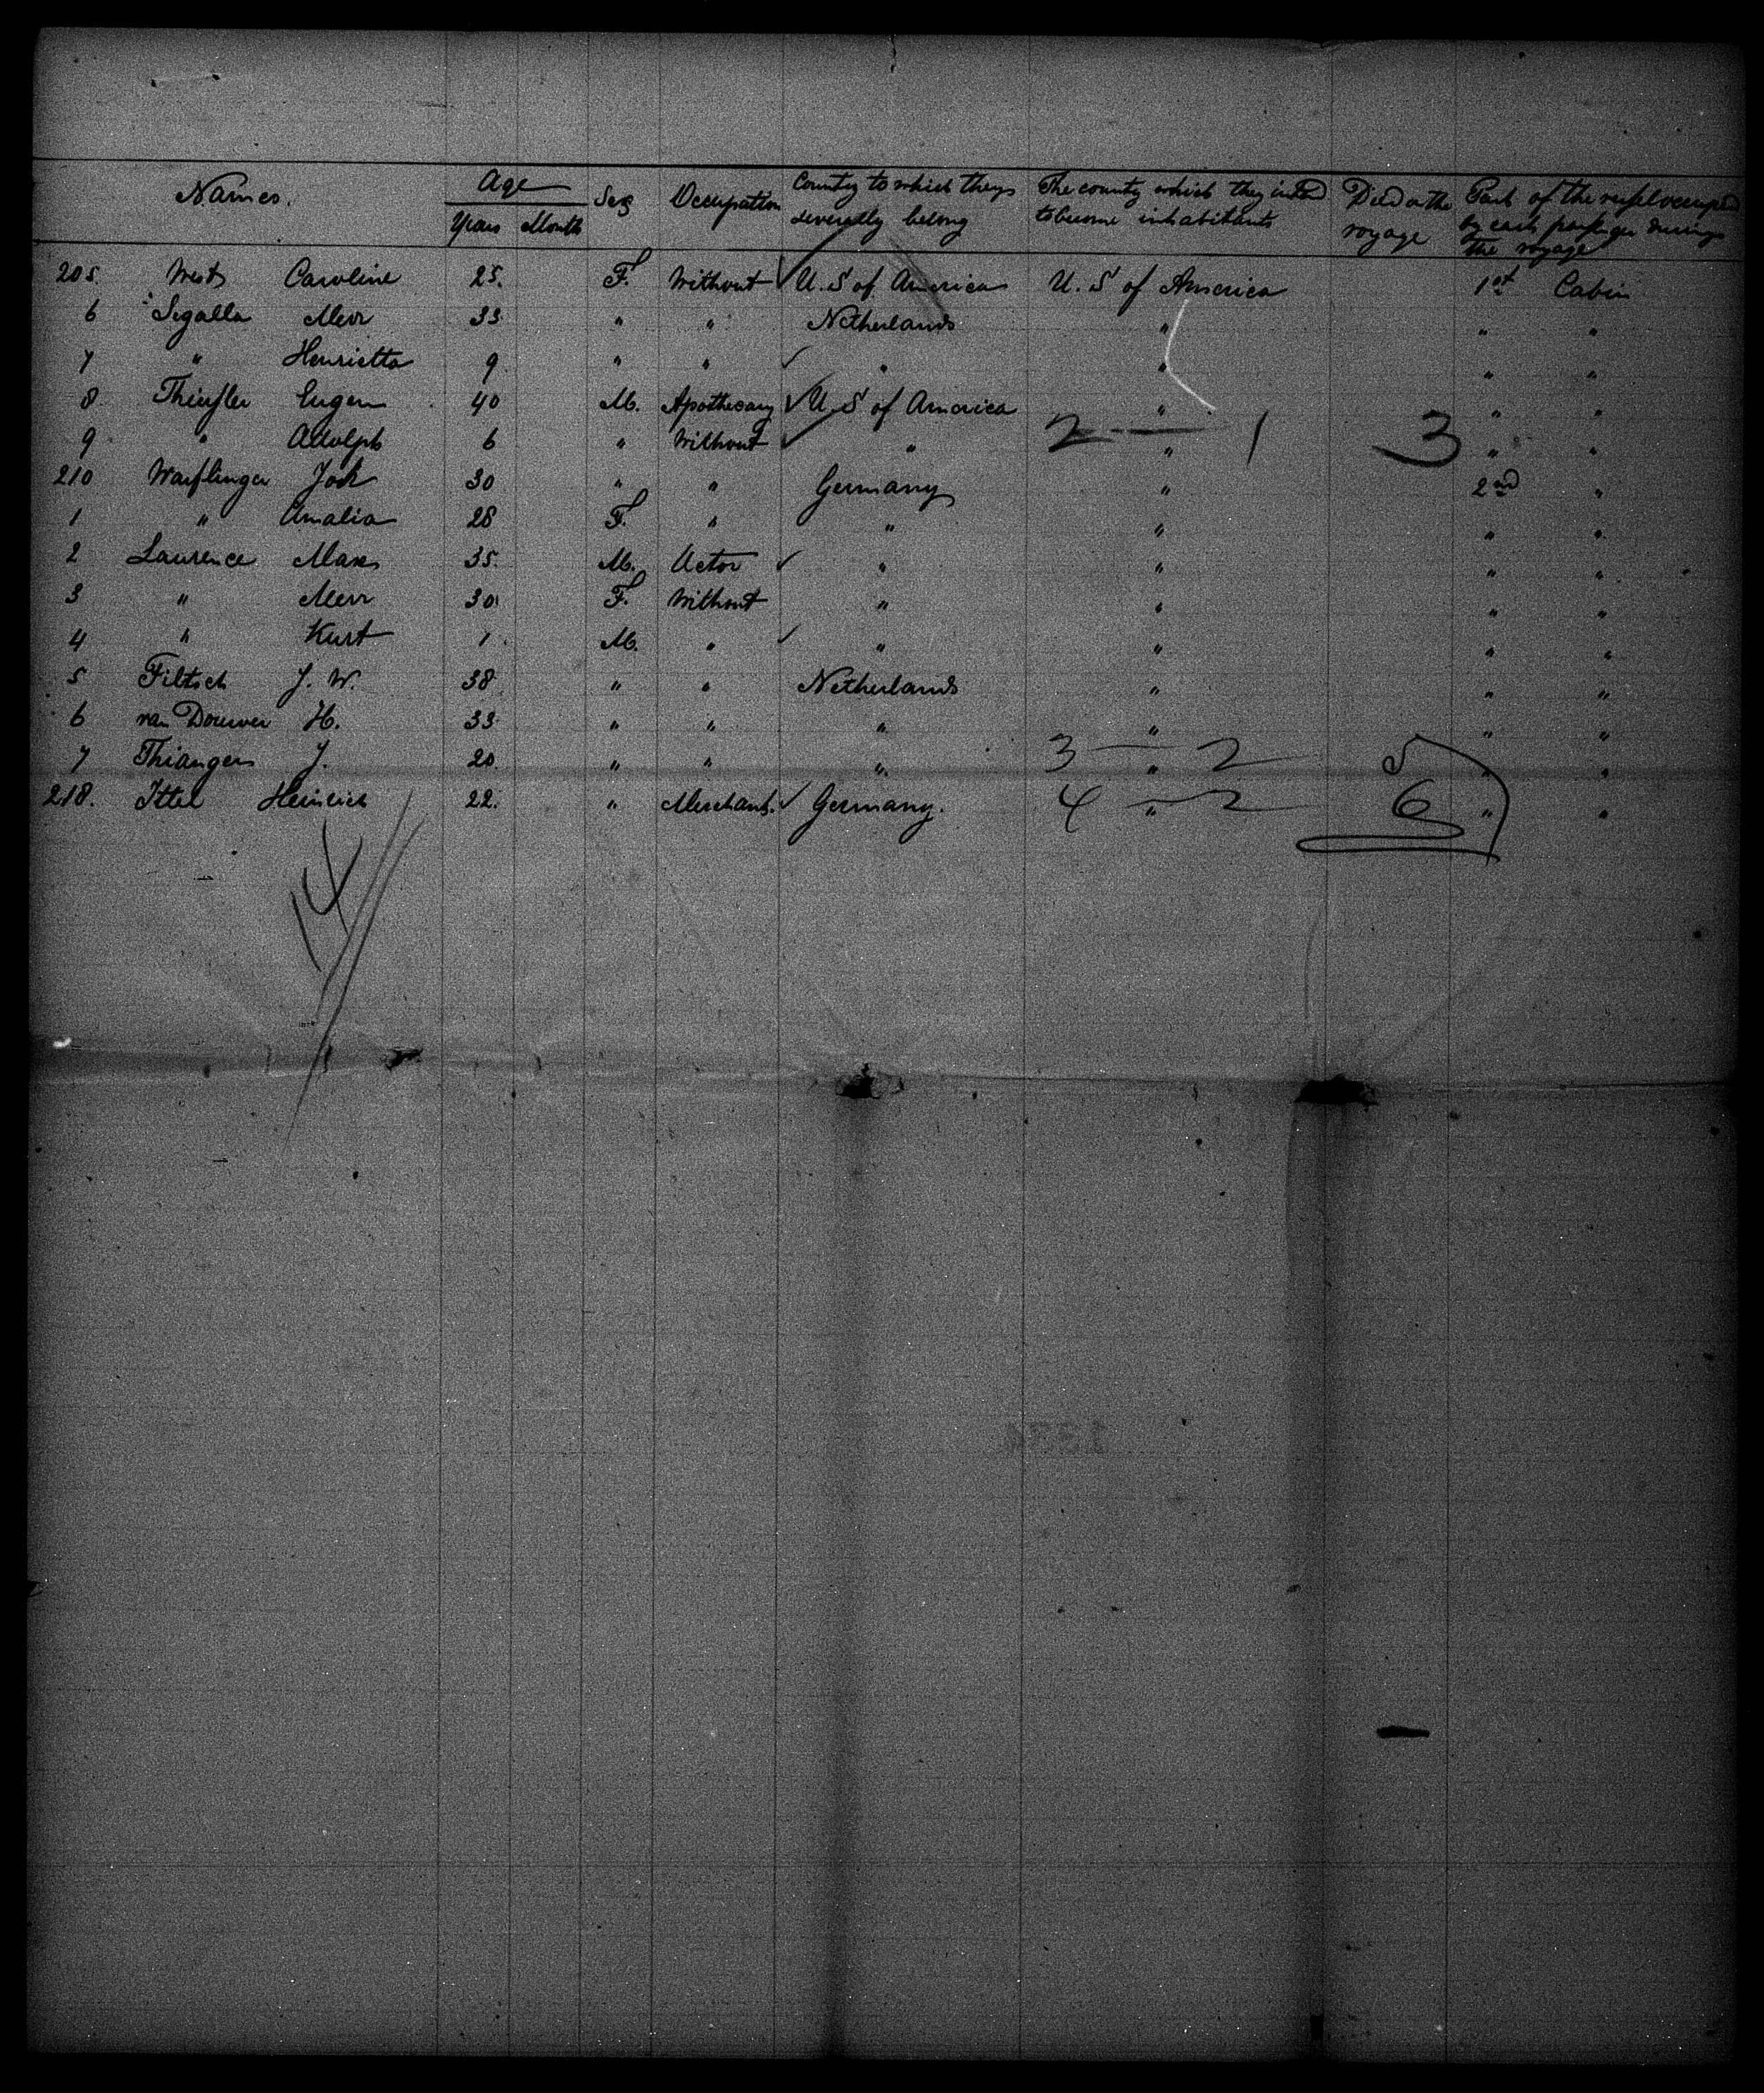 Names. Age Sex Occupation Country to which they severally belong The country which they intend to become inhabitants Died on the voyage Part of the vessel occupied by each passenger during the voyage
Years Month
205. West Caroline 25. F. Without U. S of America U. S of America 1st Cabin
6 Segalla Mevr 33 " " Netherlands " " "
7 " Henrietta 9 " " " " " "
8 Thiessler Eugen 40 M. Apothecary U. S of America " " "
9 " Adolph 6 " Without " " " "
2 — 1 3
210 Waeslinger Joh 30 " " Germany " 2nd "
1 " Amalia 28 F. " " " " "
2 Laurence Max 35. M. Actor " " " "
3 " Mevr 30 F. Without " " " "
4 " Kurt 1 M. " " " " "
5 Filtsch J. W. 38 " " Netherlands " " "
6 van Douwer H. 33 " " " " " "
7 Thiangen J. 20 " " " " " "
3 — 2 5
218. Ittel Heinrich 22. " Merchant. Germany. " " "
4 — 2 6
14